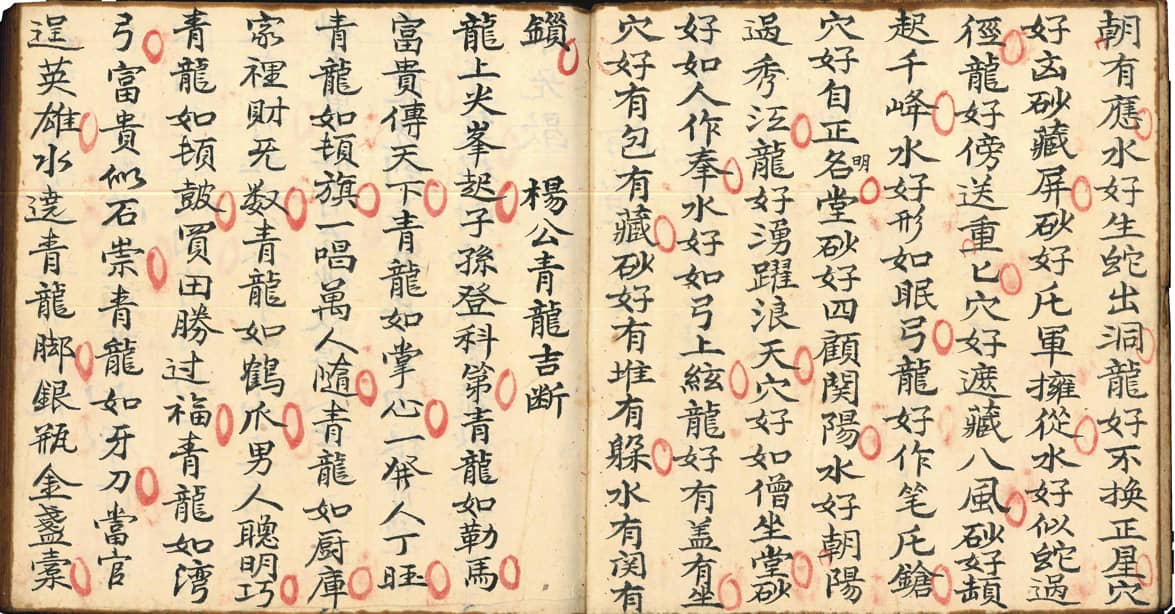 朝有應水好生蛇出洞龍好不換正星穴
好玄砂藏屏砂好乇軍擁從水好似蛇過
徑龍好傍送重匕穴好遮藏八風砂好頓
起千峰水好形如眠弓龍好作笔乇鎗
穴好自正名明堂砂好四顧関陽水好朝陽
過秀江龍好湧躍浪天穴好如僧坐堂砂
好如人作奉水好如弓上絃龍好有盖有坐
穴好有包有藏砂好有堆有躲水有関有
鎖　楊公青龍吉断
龍上尖峯起子孫登科第青龍如勒馬
富貴傳天下青龍如掌心一發人丁旺
青龍如頓旗一唱萬人随青龍如厨庫
家裡財无数青龍如鶴爪男人聰明巧
青龍如頓皷買田勝过福青龍如湾
弓富貴似石崇青龍如牙刀當官
逞英雄水遶青龍脚銀瓶金盞索